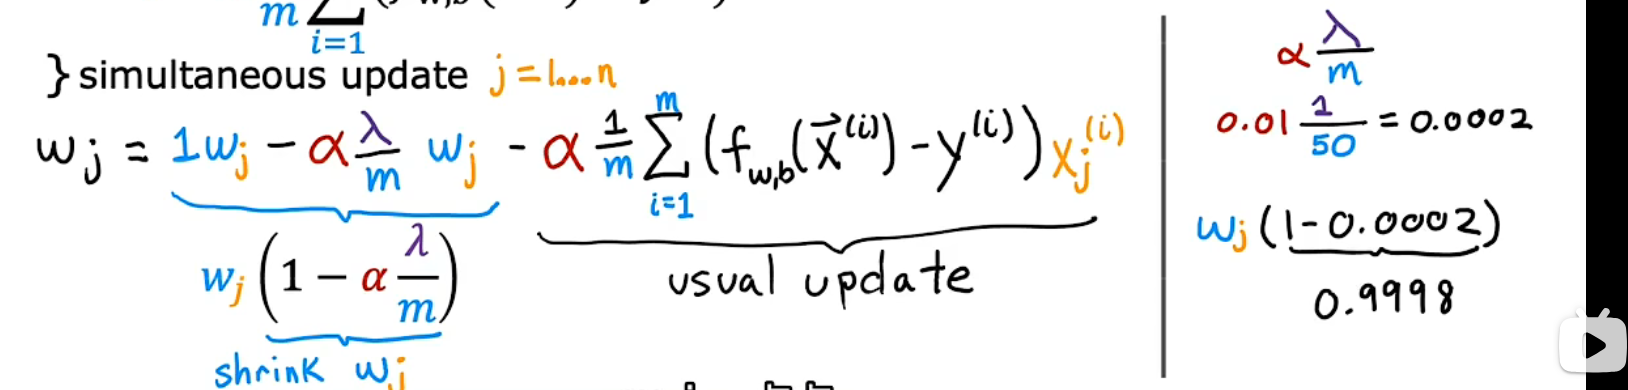 m Σ i=1
} simultaneous update j = 1...n
w_j = 1w_j − α λ/m w_j − α 1/m Σ_{i=1}^{m} (f_{w,b}(x⃗^{(i)}) − y^{(i)}) x_j^{(i)}
w_j (1 − α λ/m)
usual update
shrink w_j
α λ/m
0.01 1/50 = 0.0002
w_j (1 − 0.0002)
0.9998